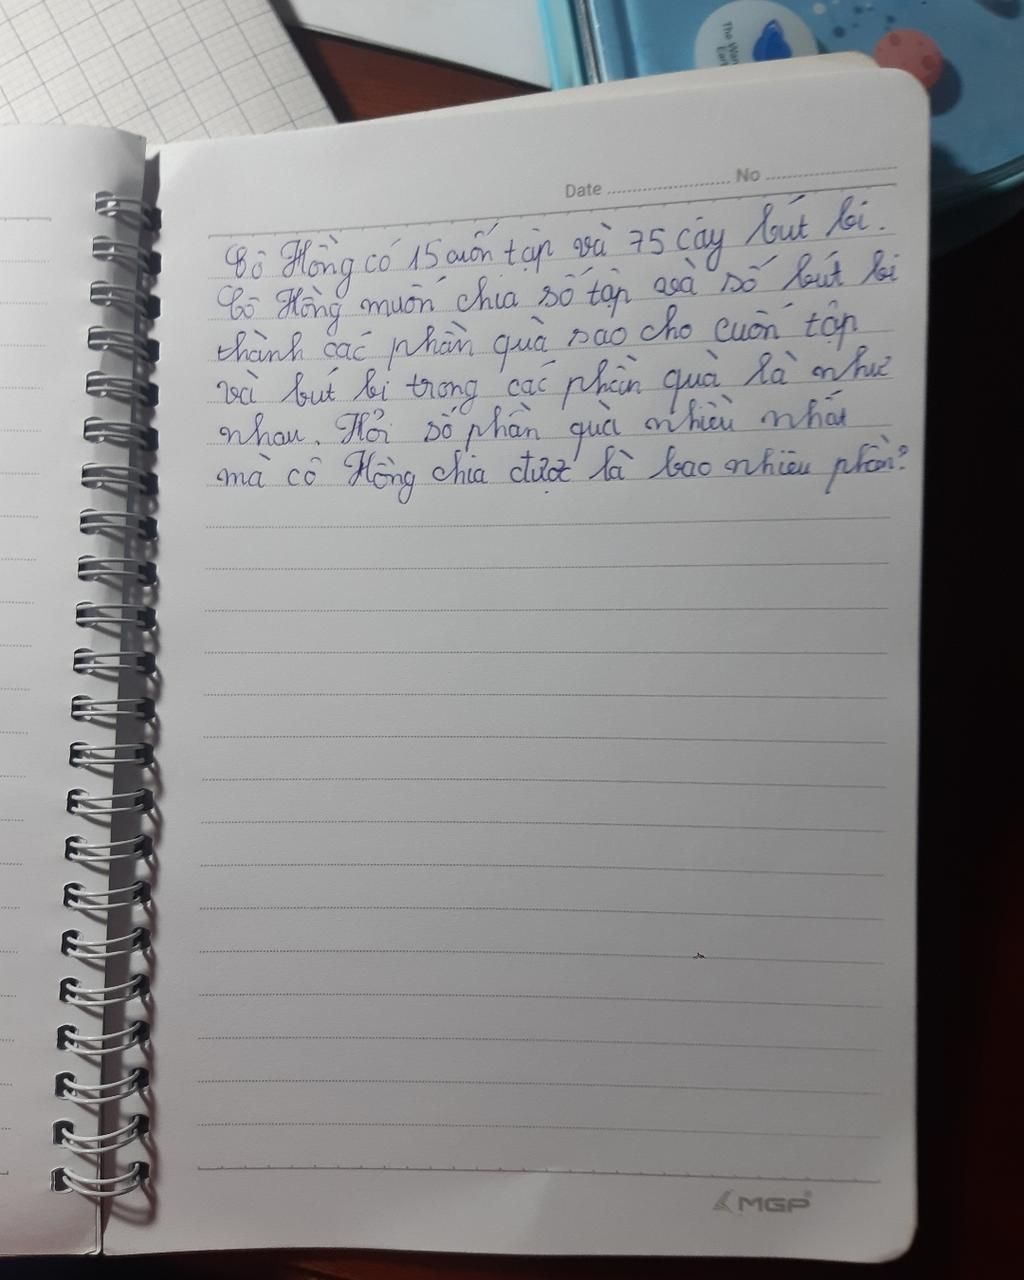 The Wan
Ear
Date ........................ No ........................
Cô Hồng có 15 cuốn tập và 75 cây bút bi.
Cô Hồng muốn chia số tập và số bút bi
thành các phần quà sao cho cuốn tập
và bút bi trong các phần quà là như
nhau. Hỏi số phần quà nhiều nhất
mà cô Hồng chia được là bao nhiêu phần?
MGP